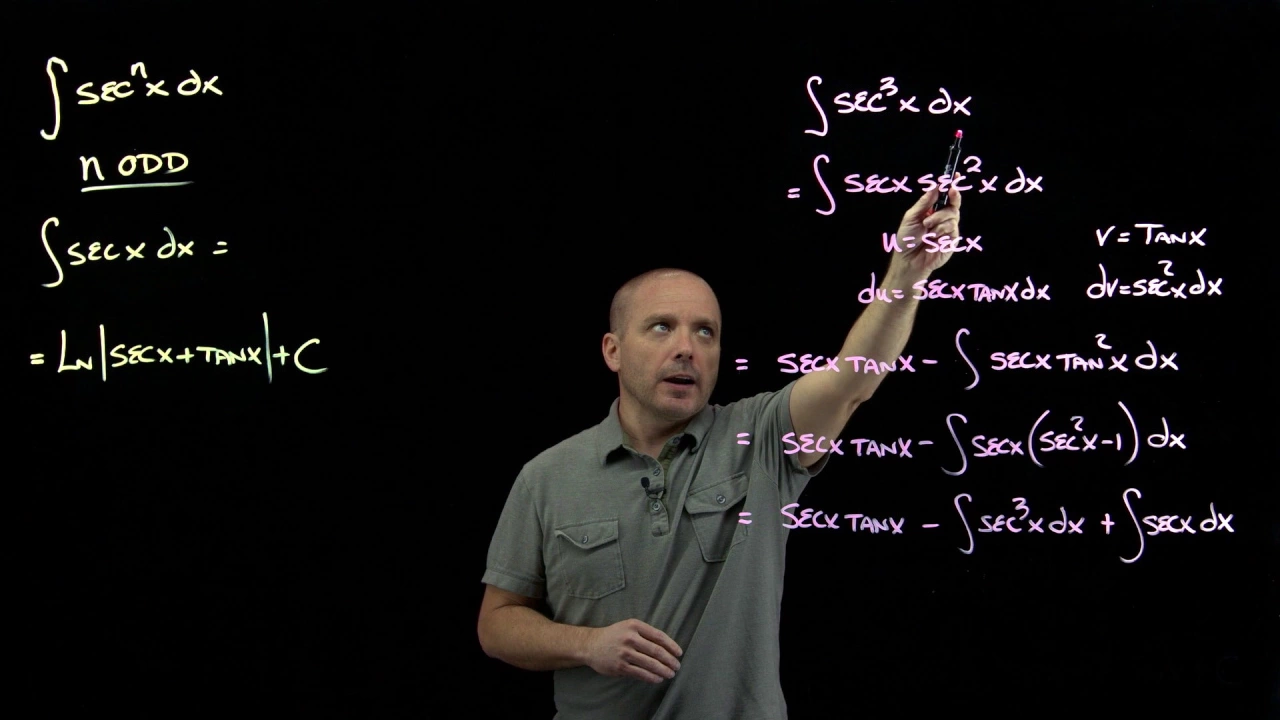 ∫ secⁿx dx
n ODD
∫ sec x dx =
= Ln |secx + Tanx| + C
∫ sec³x dx
= ∫ secx sec²x dx
u = secx v = Tanx
du = secx Tanx dx dv = sec²x dx
= secx Tanx - ∫ secx Tan²x dx
= secx Tanx - ∫ secx (sec²x - 1) dx
= secx Tanx - ∫ sec³x dx + ∫ secx dx